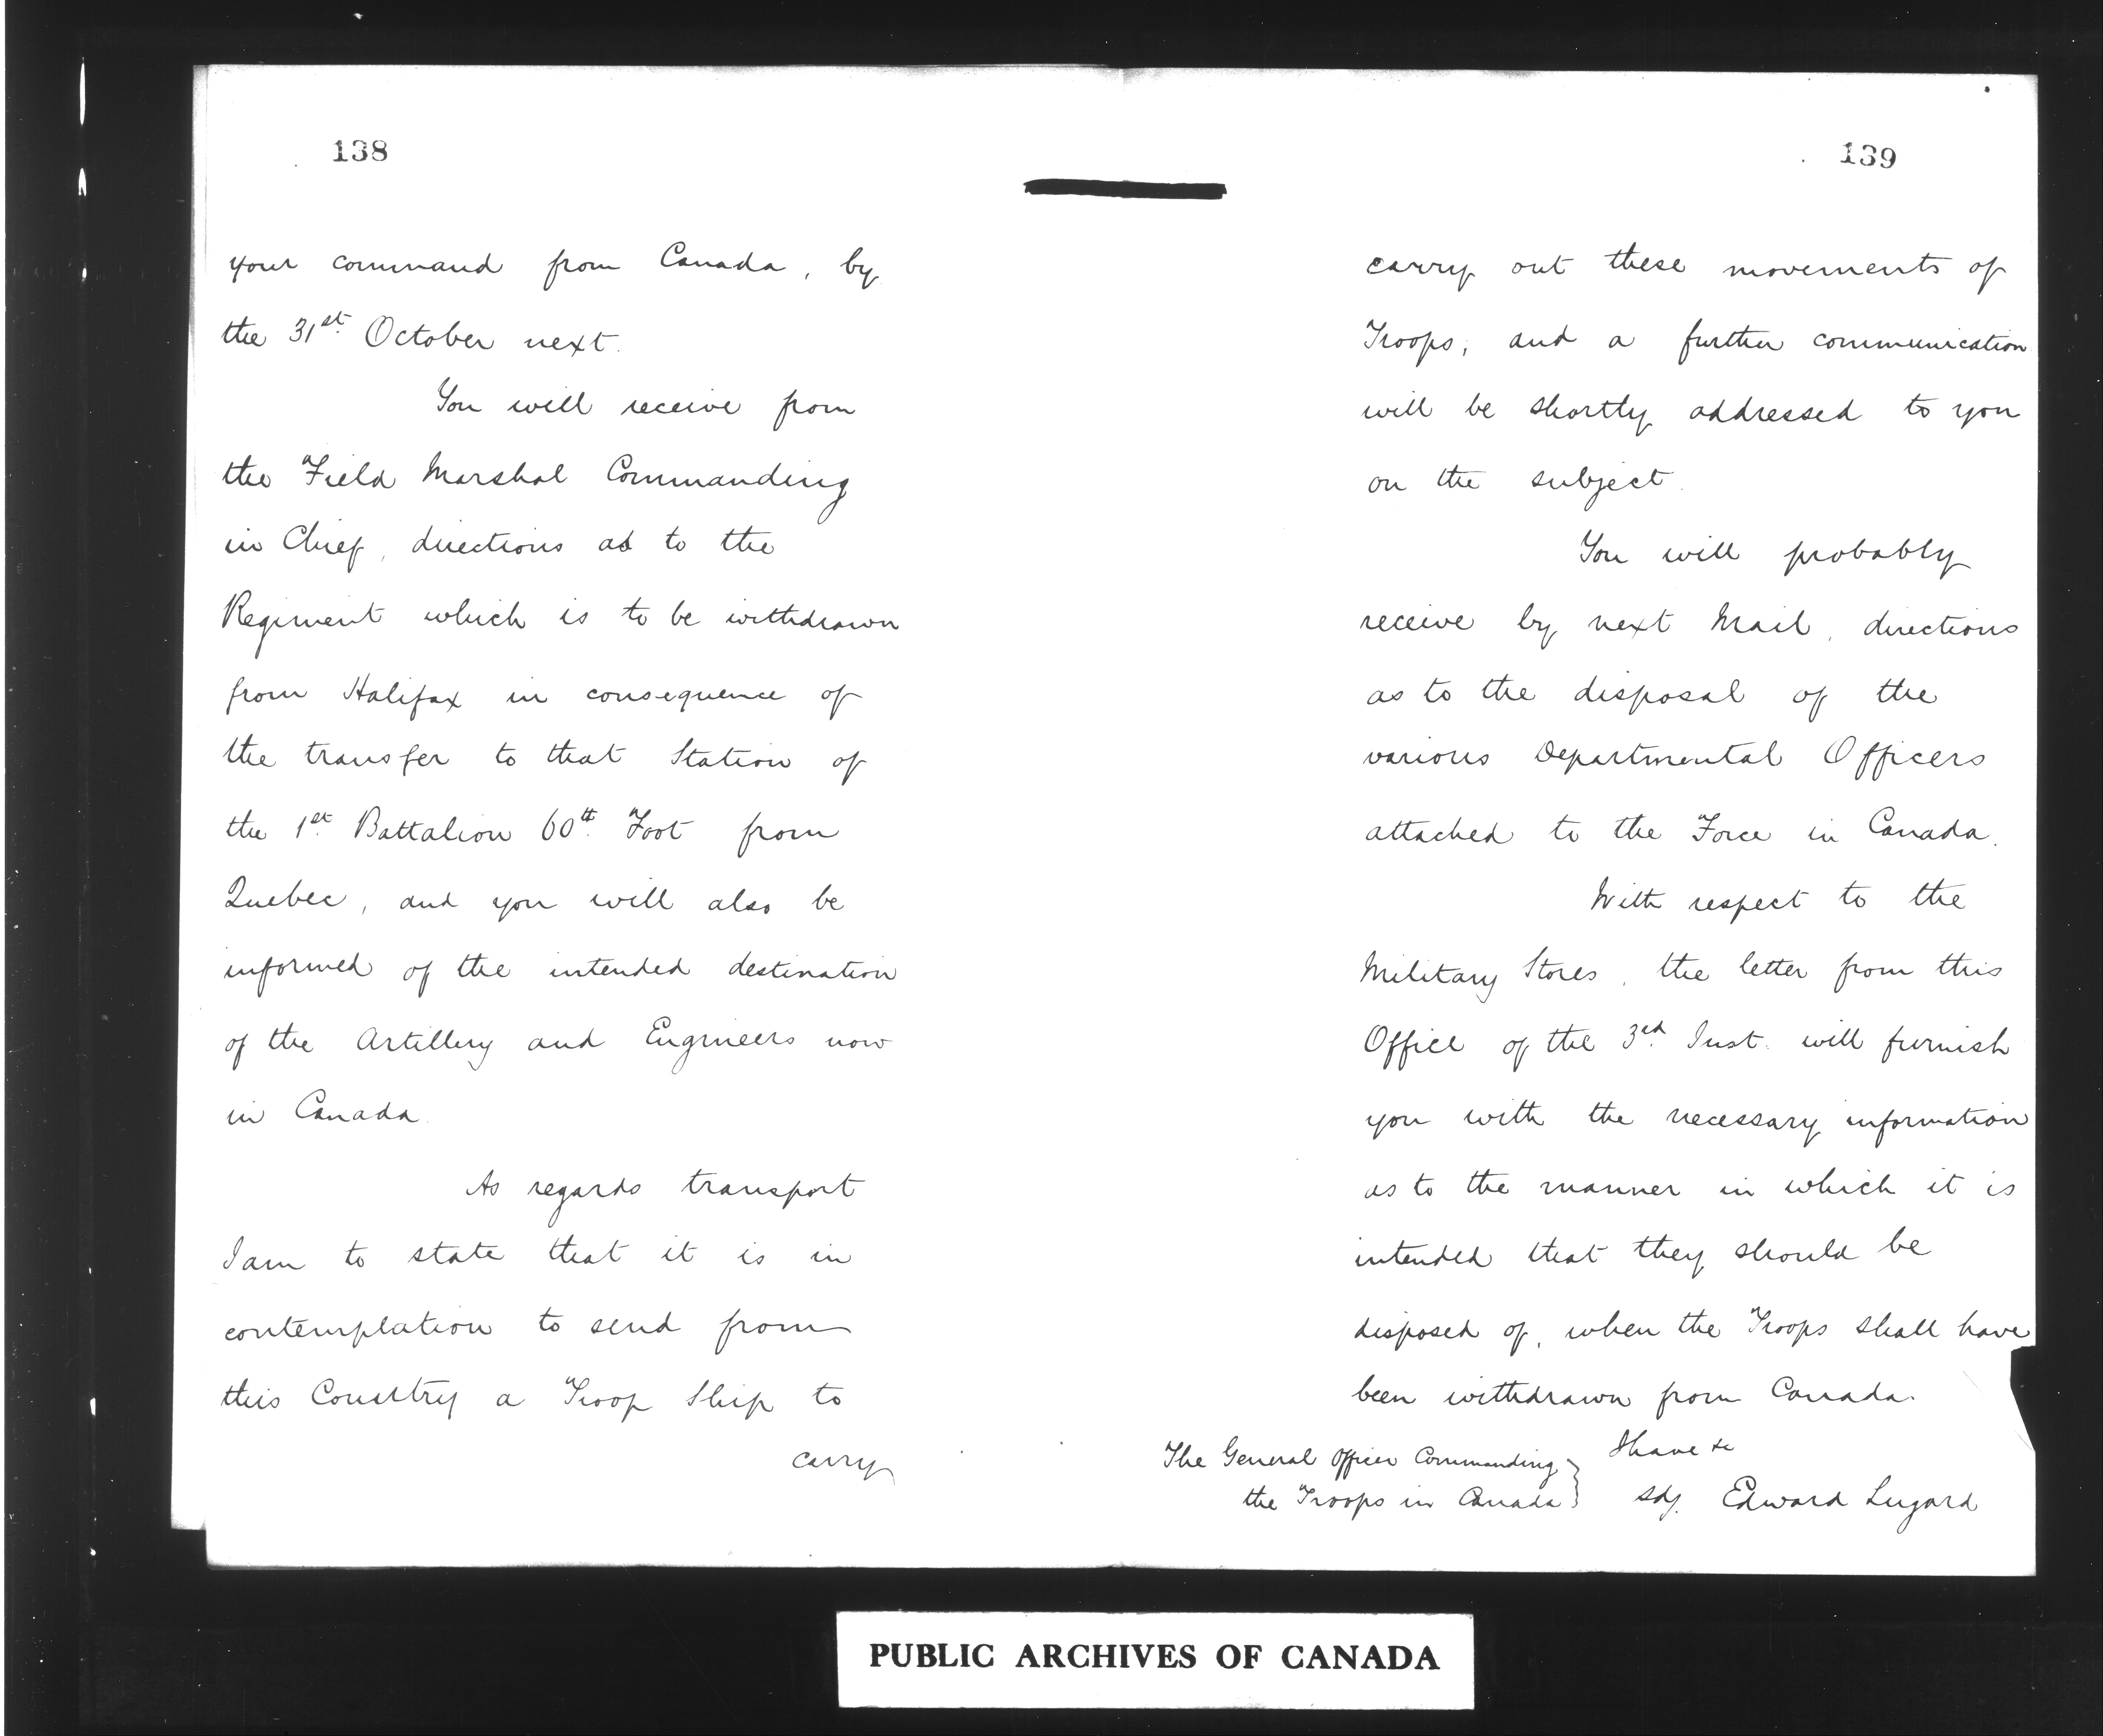 138
your command from Canada, by
the 31st. October next.
You will receive from
the Field Marshal Commanding
in Chief, directions as to the
Regiment which is to be withdrawn
from Halifax in consequence of
the transfer to that Station of
the 1st. Battalion 60th. Foot from
Quebec, and you will also be
informed of the intended destination
of the Artillery and Engineers now
in Canada.
As regards transport
I am to state that it is in
contemplation to send from
this Country a Troop Ship to
carry
139
carry out these movements of
Troops, and a further communication
will be shortly addressed to you
on the subject.
You will probably
receive by next Mail, directions
as to the disposal of the
various Departmental Officers
attached to the Force in Canada.
With respect to the
Military Stores, the letter from this
Office of the 3rd. Inst. will furnish
you with the necessary information
as to the manner in which it is
intended that they should be
disposed of, when the Troops shall have
been withdrawn from Canada.
I have &c
The General Officer Commanding
the Troops in Canada
Sdg. Edward Lugard
PUBLIC ARCHIVES OF CANADA